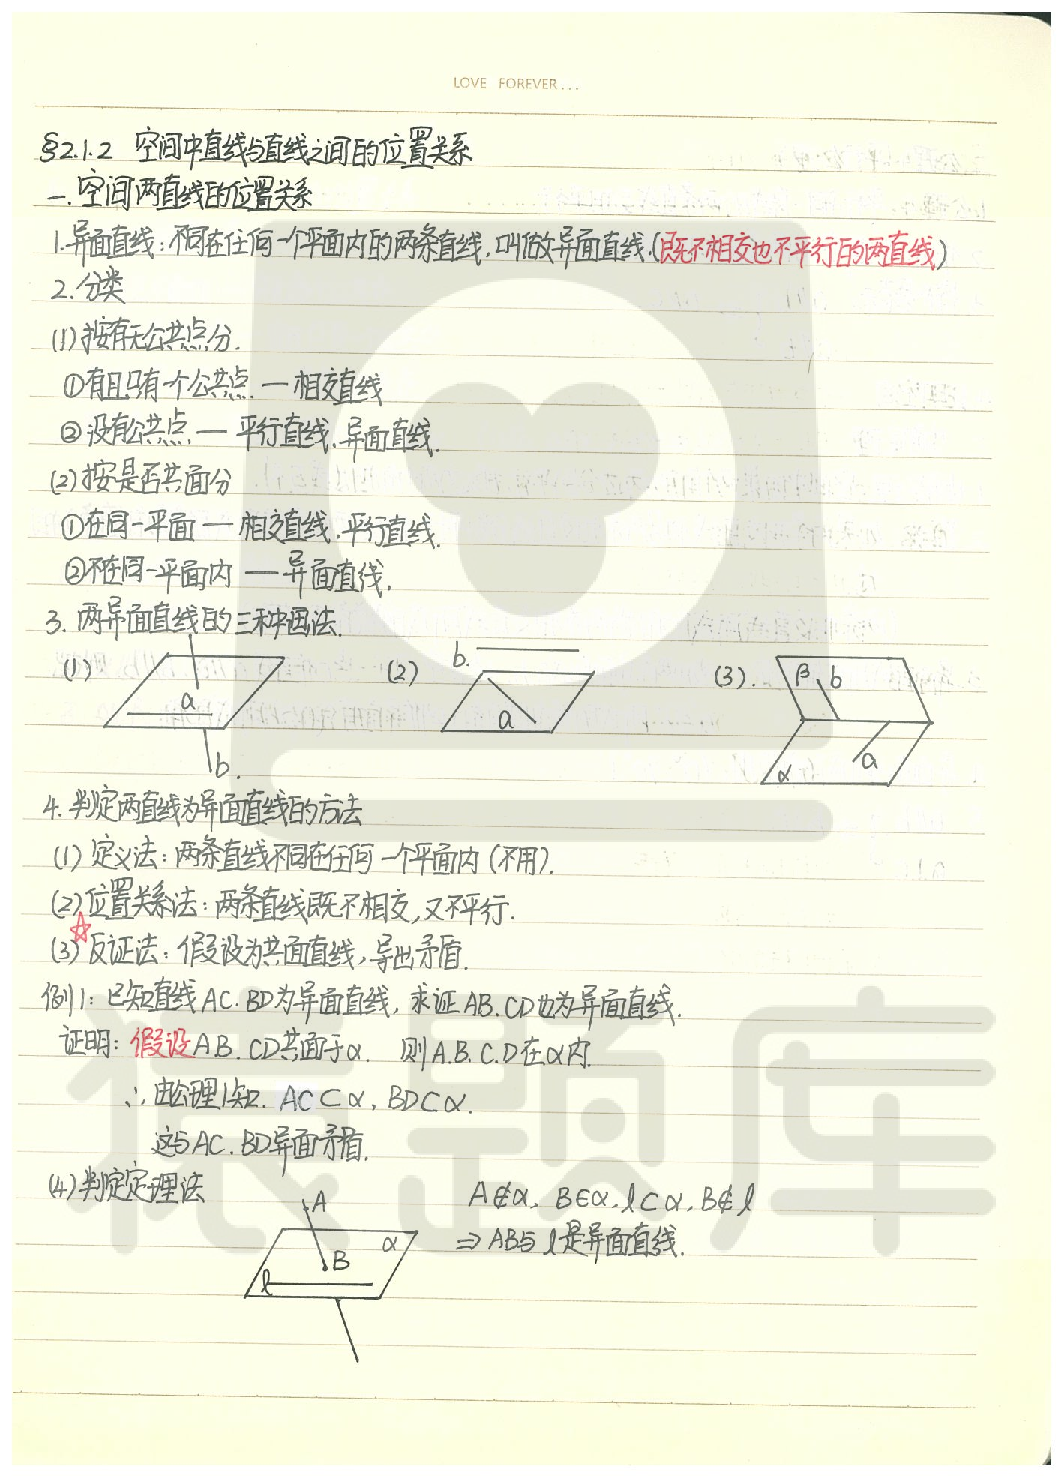 LOVE FOREVER...
§2.1.2 空间中直线与直线之间的位置关系
一.空间两直线的位置关系
1.异面直线:不同在任何一个平面内的两条直线.叫做异面直线.(既不相交也不平行的两直线)
2.分类
(1)按有无公共点分.
①有且只有一个公共点.—相交直线
②没有公共点—平行直线.异面直线.
(2)按是否共面分
①在同一平面—相交直线.平行直线.
②不在同一平面内—异面直线.
3.两异面直线的三种画法.
(1) a b.
(2) b. a
(3). β b a α
4.判定两直线为异面直线的方法
(1)定义法:两条直线不同在任何一个平面内(不用).
(2)位置关系法:两条直线既不相交,又不平行.
☆
(3)反证法:假设为共面直线,导出矛盾.
例1:已知直线AC.BD为异面直线,求证AB.CD也为异面直线.
证明:假设AB.CD共面于α. 则A.B.C.D在α内.
∴由公理1知.AC⊂α,BD⊂α.
这与AC.BD异面矛盾.
(4)判定定理法
A B α l
A∉α,B∈α,l⊂α,B∉l
⇒AB与l是异面直线.
猿题库